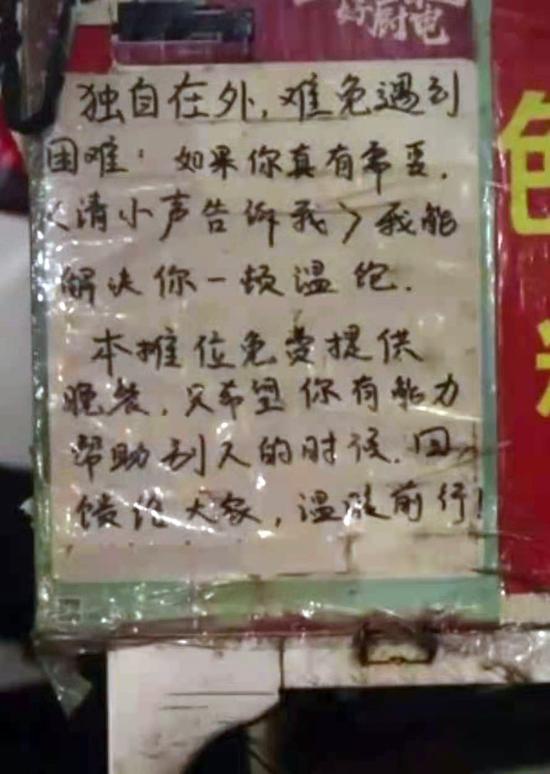 好厨电
独自在外,难免遇到
困难:如果你真有需要.
<请小声告诉我>我能
解决你一顿温饱.
本摊位免费提供
晚餐.只希望你有能力
帮助别人的时候.回
馈给大家,温暖前行!